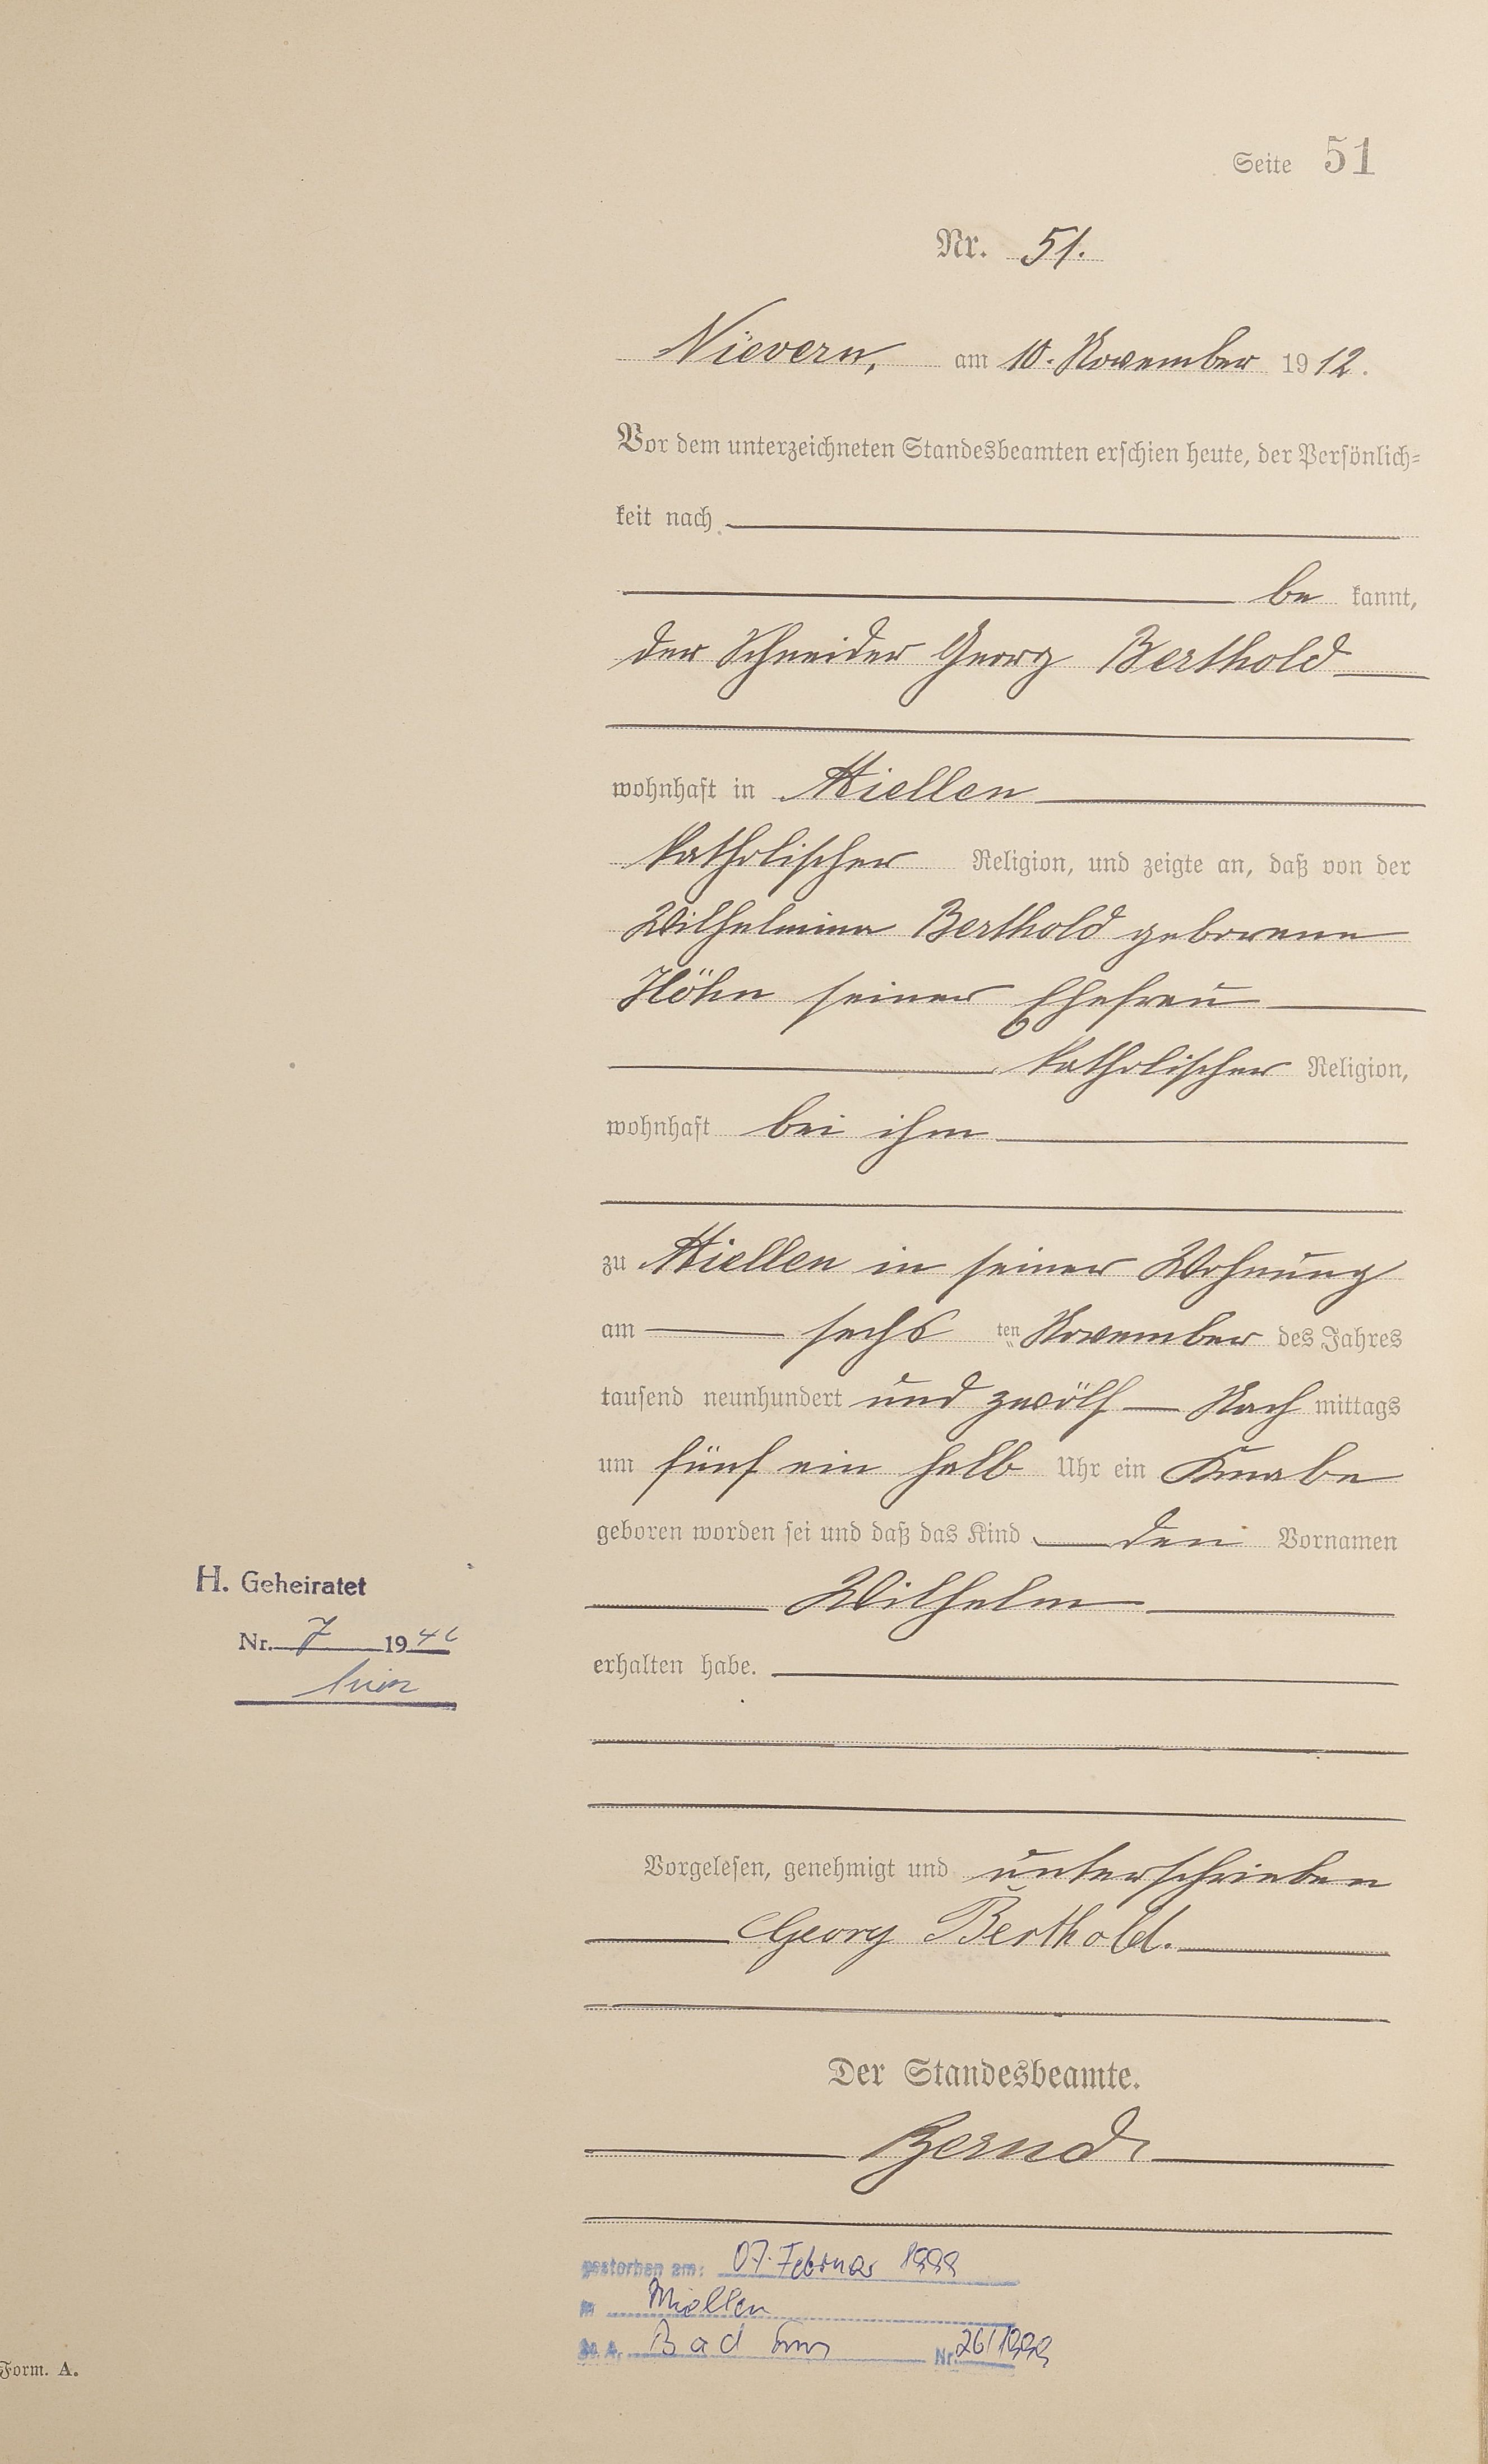 Seite 51
Nr. 51.
Nievern, am 10. November 1912.
Vor dem unterzeichneten Standesbeamten erschien heute, der Persönlich-
keit nach
be kannt,
der Schneider Georg Berthold
wohnhaft in Miellen
katholischer Religion, und zeigte an, daß von der
Wilhelmina Berthold geborene
Höhn seiner Ehefrau
katholischer Religion,
wohnhaft bei ihm
zu Miellen in seiner Wohnung
am sechs ten November des Jahres
tausend neunhundert und zwölf Nach mittags
um fünf ein halb Uhr ein Knabe
geboren worden sei und daß das Kind den Vornamen
Wilhelm
erhalten habe.
H. Geheiratet
Nr. 7 19
Vorgelesen, genehmigt und unterschrieben
Georg Berthold.
Der Standesbeamte.
gestorben am: 07. Februar 1999
in Miellen
St. A. Bad Ems Nr. 26/1999
Form. A.